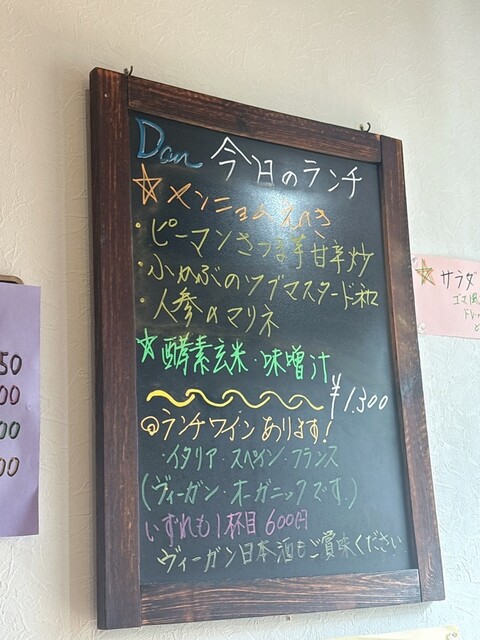 Dan 今日のランチ
☆メンニョムえのき
・ピーマンさつま芋甘辛炒
・小かぶのツブマスタード和
・人参のマリネ
☆酵素玄米・味噌汁
¥1.300
◎ランチワインあります!
・イタリア・スペイン・フランス
(ヴィーガン・オーガニックです。)
いずれも1杯目600円
ヴィーガン日本酒もご賞味ください
☆サラダ
50
00
00
00